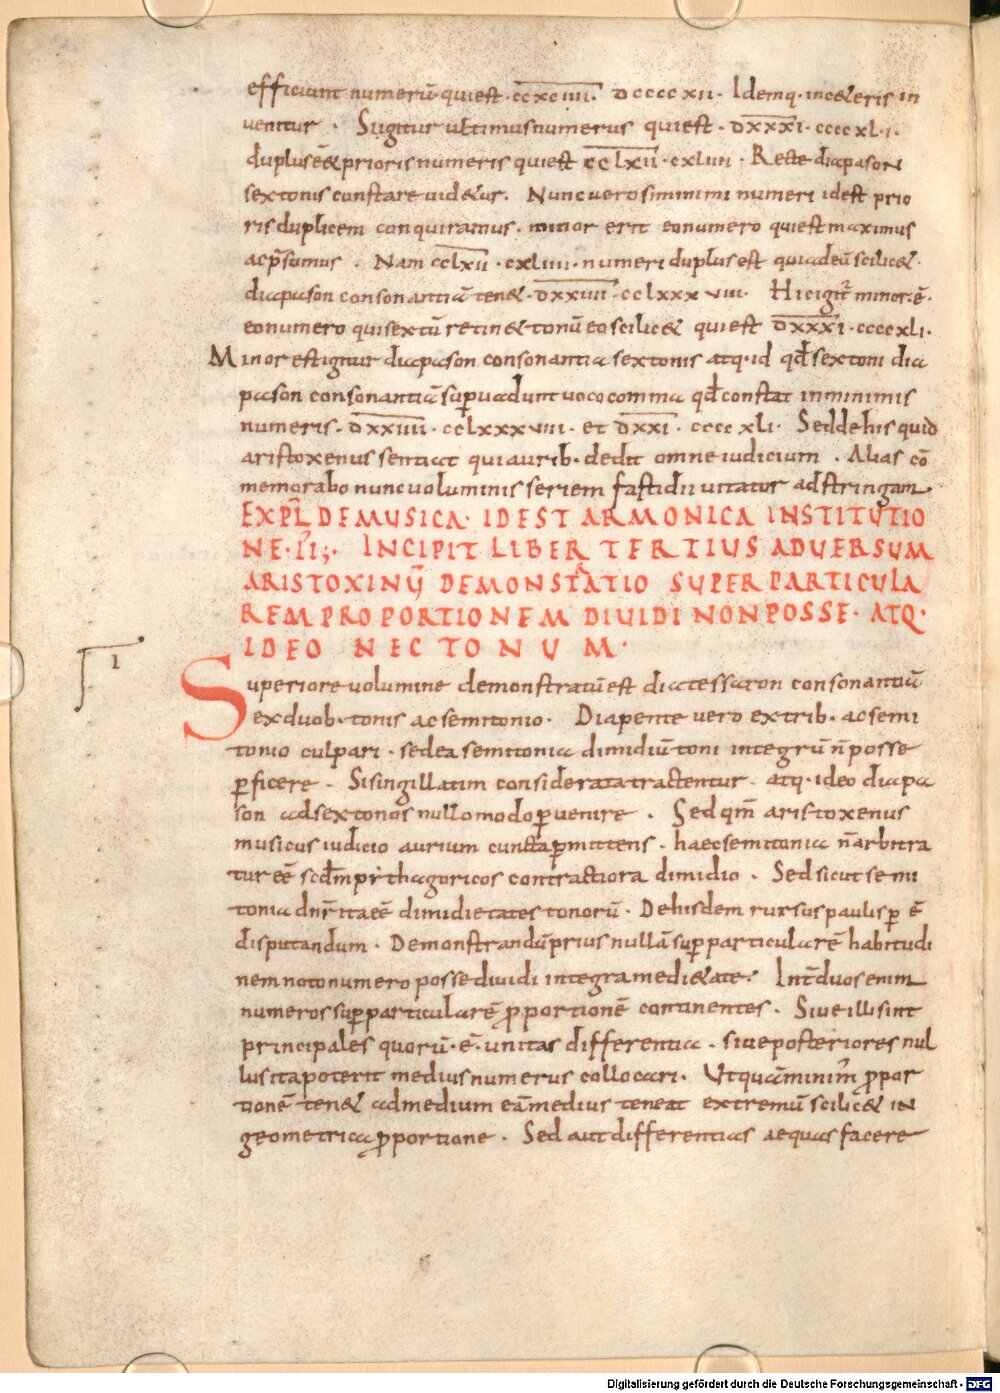 efficiunt numerū quiest · ccxciiii · dccccxii · Idemq· incęteris in
uenitur · Sugitur ultimusnumerus quiest · dxxxi · ccccxli ·
duplusē&prioris numeris quiest cclxii · cxliiii · Recte diapason
sextonis constare uidetur. Nunc uero siminimi numeri idest prio
ris duplicem conquiramus · minor erit eonumero quiest maximus
acp̄sumus · Nam cclxii · cxliiii · numeri duplusest quiadeū scilic&
diapason consonantiā ten& · dxxiiii · cclxxxviii · Hicigit̄ minor · ē ·
eonumero quisextū retin& tonū eo scilic& quiest dxxxi · ccccxli ·
Minor estigitur diapason consonantia sextonis atq· id qđ sextoni dia
pason consonantiā sup̱uadunt uococomma qđ constat inminimis
numeris · dxxiiii · cclxxxviii · et dxxxi · ccccxli · Seddehis quid
aristoxenus sentiat quiaurib· dedit omne iudicium · Alias cō
memorabo nuncuoluminis seriem fastidii uitatur adstringam ·
EXPL̄ DEMUSICA · IDEST ARMONICA INSTITUTIO
NE · II ;· INCIPIT LIBER TERTIUS ADUERSUM
ARISTOXINŪ DEMONSTRATIO SUPERPARTICULA
REMPROPORTIONEM DIUIDI NONPOSSE · ATQ·
IDEO NEC TONUM ·
I
Superiore uolumine demonstratū est diatessaron consonantiā
exduob· tonis acsemitonio · Diapente uero extrib· acsemi
tonio culpari · sedea semitonia dimidiū toni integrū n̄ posse
p̱ficere · Sisingillatim considerata tractentur · atq· ideo diapa
son adsextonos nullomodo p̱uenire · Sed qm̄ aristoxenus
musicus iudicio aurium cuncta p̱mittens · haec semitonia n̄ arbitra
tur eē scđm pythagoricos contractiora dimidio · Sed sicut semi
tonia dn̄r ita eē dimidietates tonorū · Dehisdem rursus paulisp̱ ē
disputandum · Demonstrandū prius nullā sup̱particularē habitudi
nem noto numero posse diuidi integra medi&ate · Int̄ duos enim
numeros sup̱particularē p̱portionē continentes · Siue illi sint
principales quorū · ē · unitas differentia · siue posteriores nul
lus ita poterit medius numerus collocari · Utquā minim̄ p̱por
tionē ten& admedium eā medius teneat extremū scilic& in
geometrica p̱portione · Sed aut differentias aequas facere